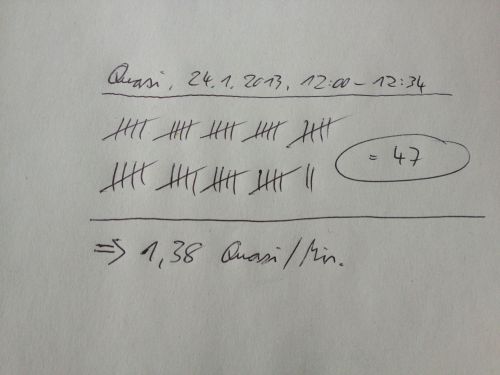 Quasi, 24.1.2013, 12:00 – 12:34
= 47
=> 1,38 Quasi/Min.